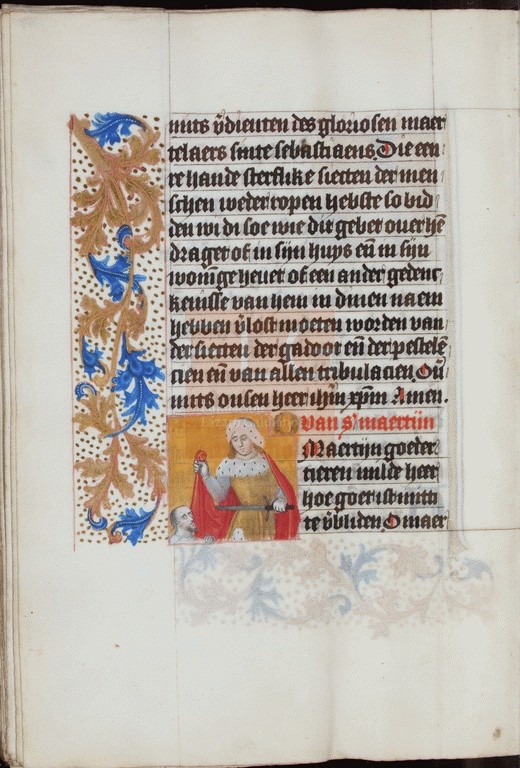 mits v̄dienten des gloriosen maer
telaers sinte sebastiaens. Die een
re hande sterflike siecten der men
schen wederropen hebste so bid
den wi di soe wie dit gebet over hē
drager of in sijn huys eñ in sijn
woninge hevet of een ander gedenc
kenisse van hem in dinen naem
hebben v̄lost moeten worden van
der siecten der gadoot eñ der pestelē
cien eñ van allen tribulacien. Ov̄
mits onsen heer ihm̄ xpm̄ Amen.
van sʳ maertijn
O Maertijn goeder
tieren milde heer
hoe goet ist mit
te v̄bliden. O maer